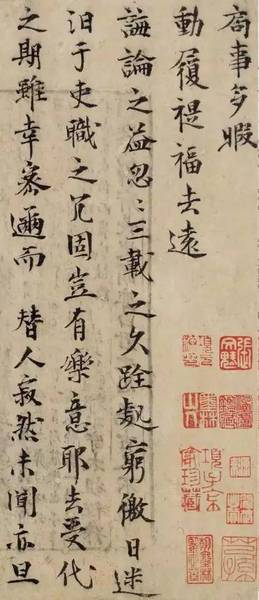 局事多暇
動履禔福去遠
誨論之益忽〻三載之久跧處窮徼日迷
汨于吏職之冗固豈有樂意耶去受代
之期雖幸密邇而 替人寂然未聞亦旦
項子京
家珍藏